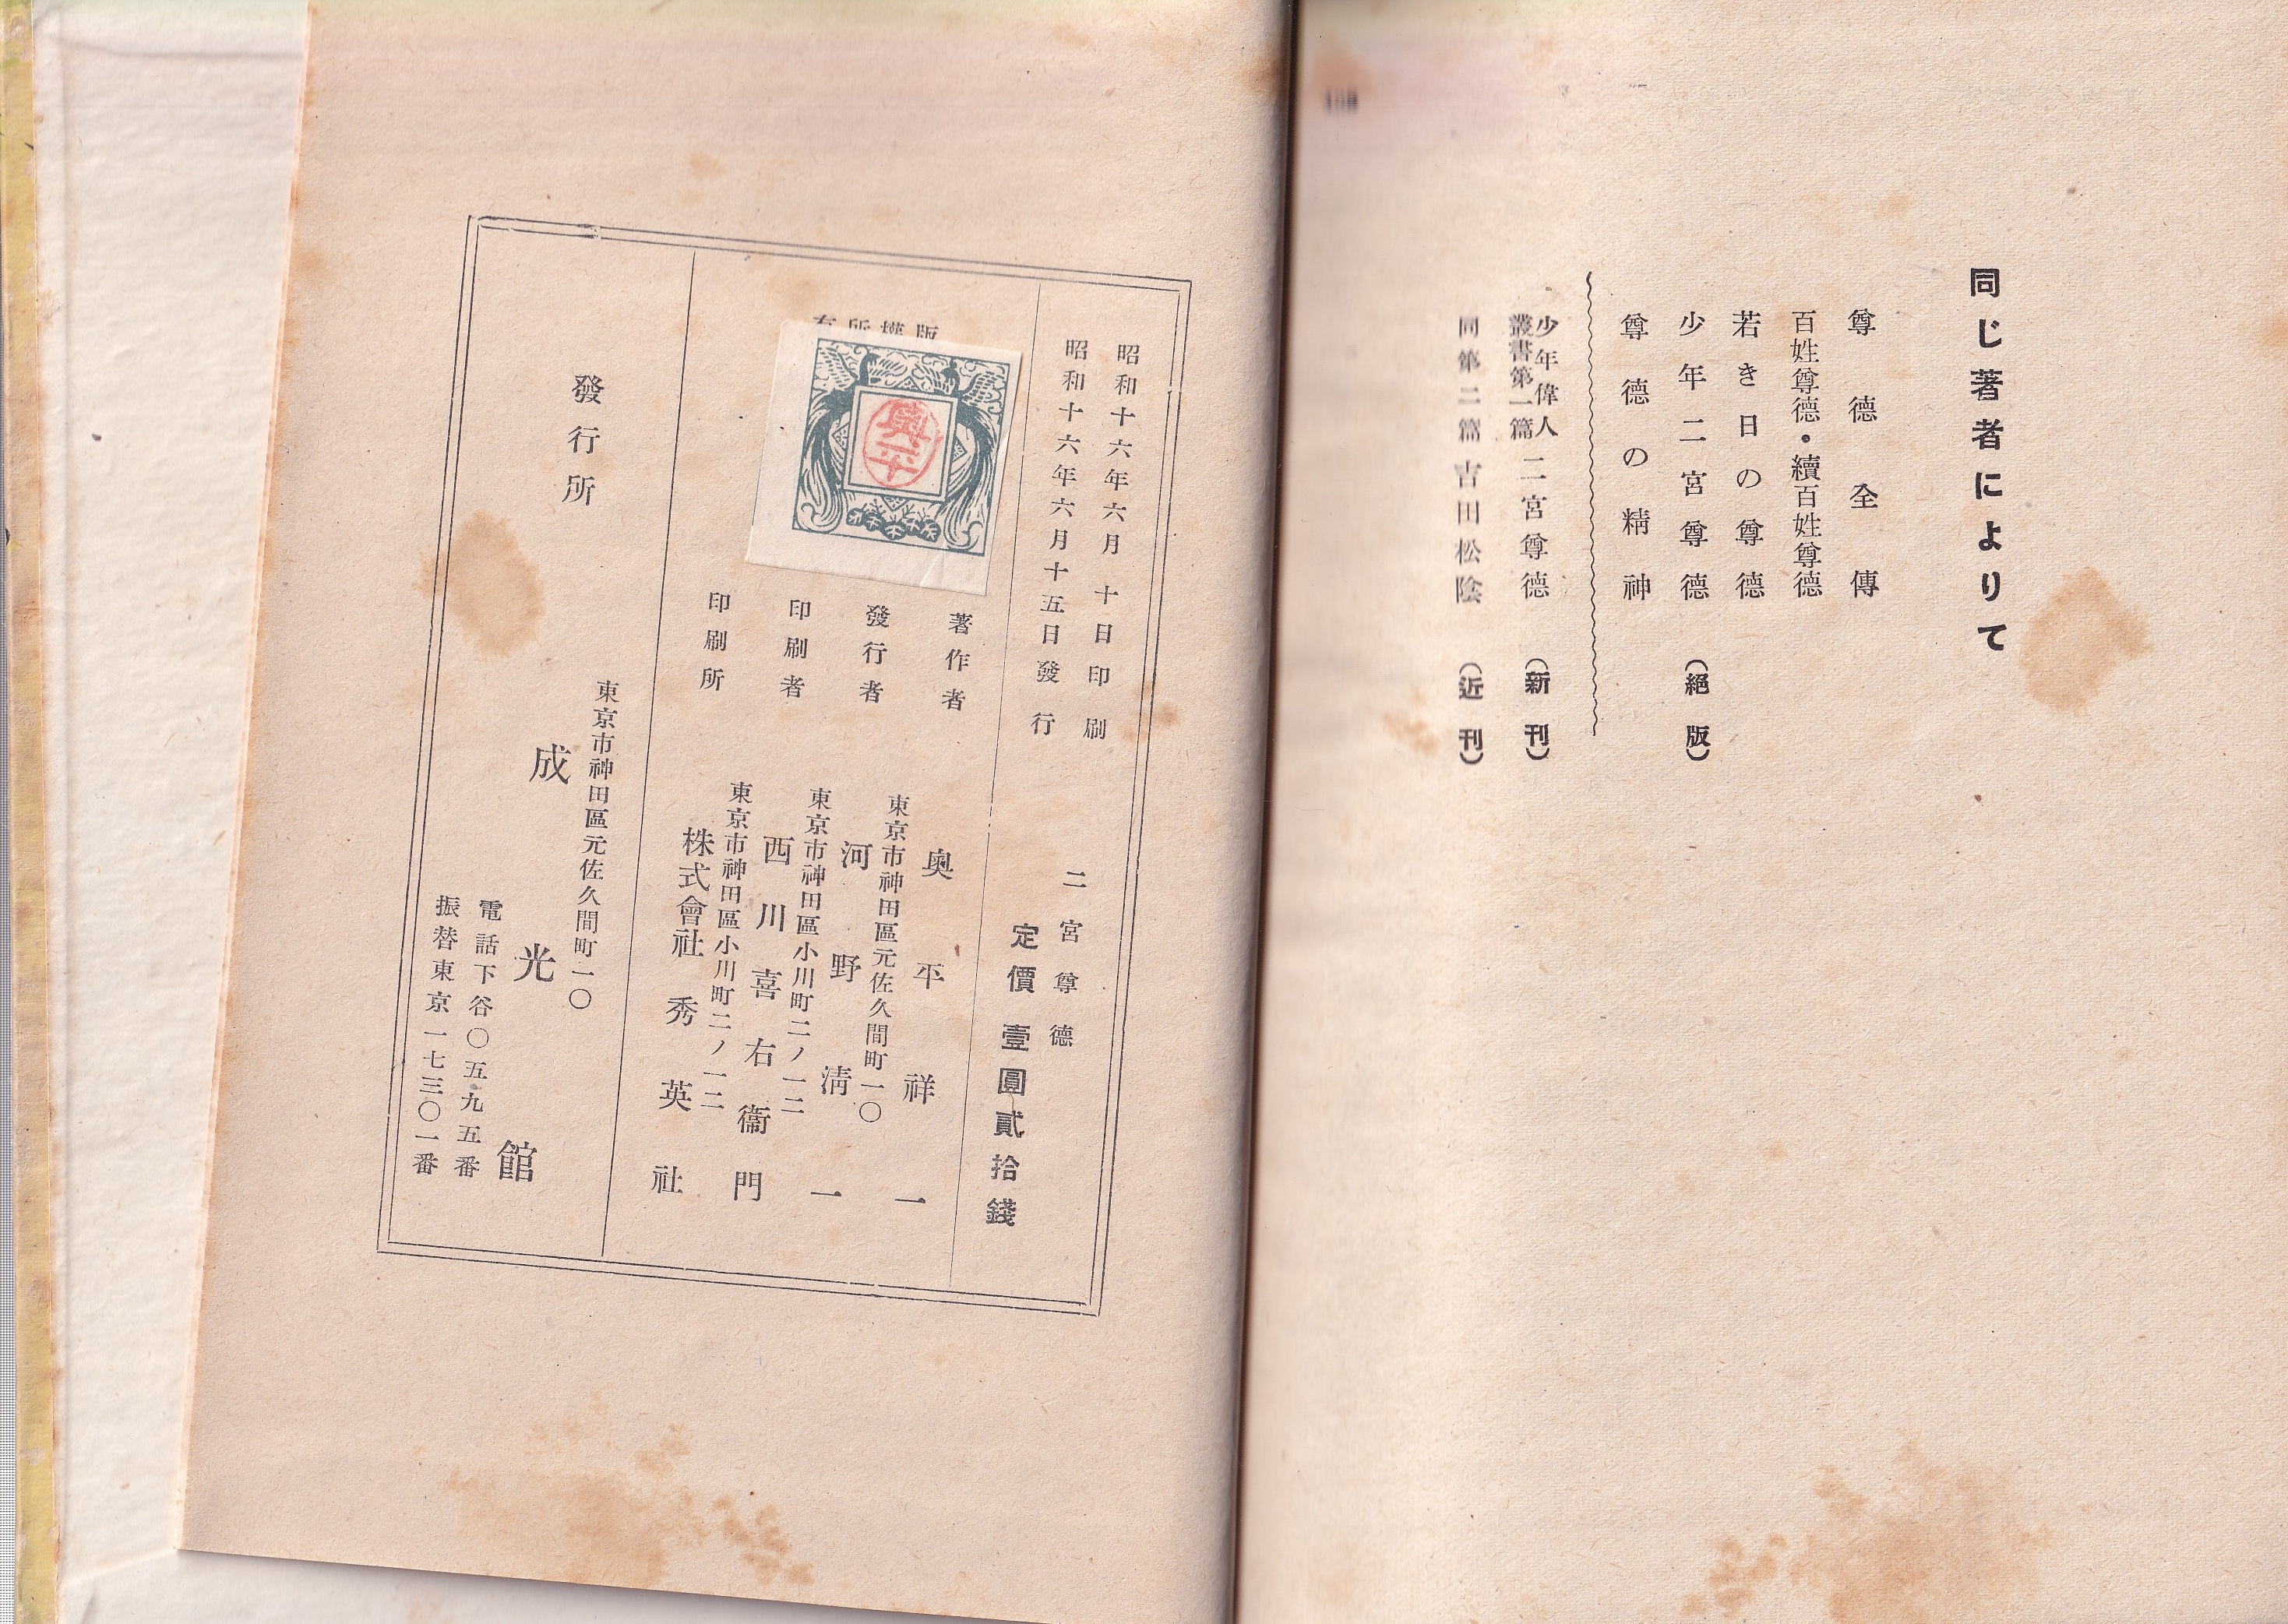 同じ著者によりて
尊德全傳
百姓尊德・續百姓尊德
若き日の尊德
少年二宮尊德 （絕版）
尊德の精神
少年偉人叢書第一篇 二宮尊德 （新刊）
同第二篇 吉田松陰 （近刊）
昭和十六年六月 十日印刷
昭和十六年六月十五日發行
二宮尊德
定價 壹圓貳拾錢
版權所有
奥平
著作者 奥平祥一
東京市神田區元佐久間町一〇
發行者 河野淸一
東京市神田區小川町二ノ一二
印刷者 西川喜右衞門
東京市神田區小川町二ノ一二
印刷所 株式會社 秀英社
發行所
東京市神田區元佐久間町一〇
成光館
電話下谷〇五九五番
振替東京一七三〇一番